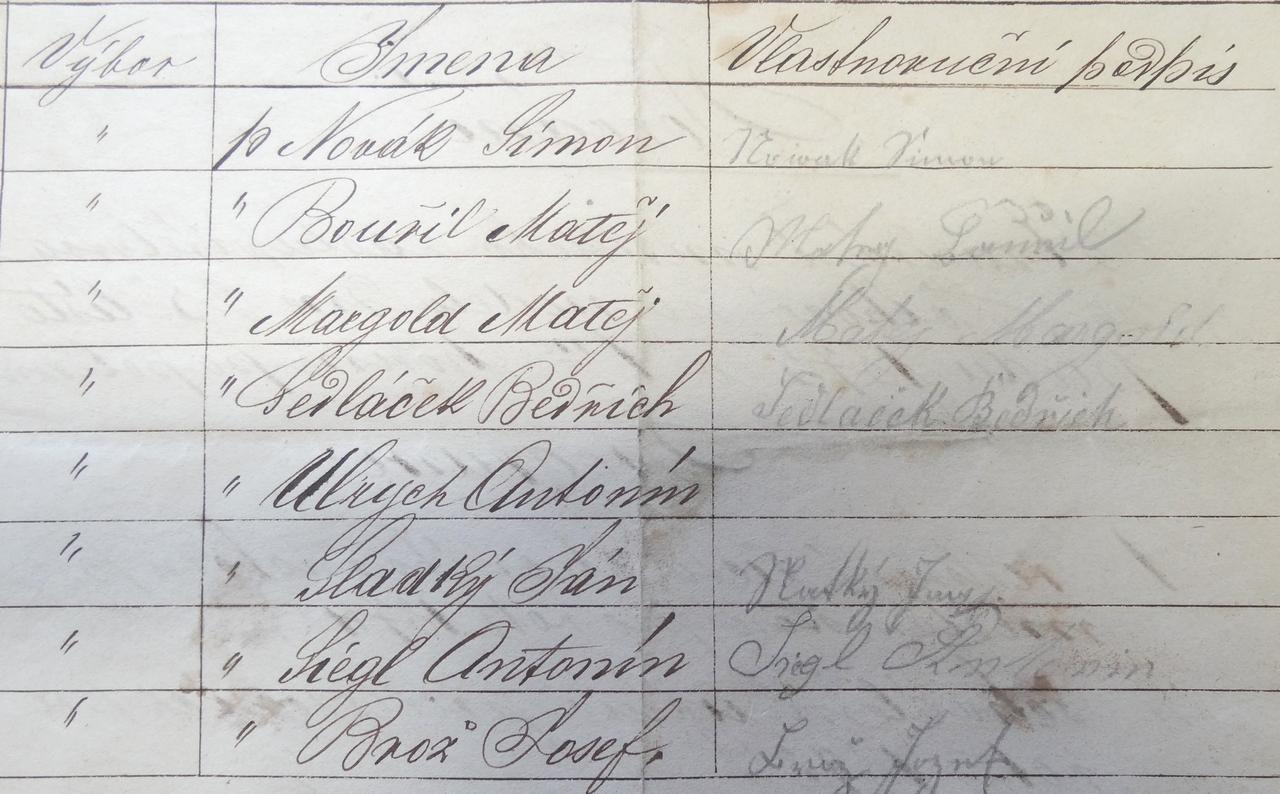 Výbor Jmena Vlastnoruční podpis
" p Novák Simon Nowak Simon
" " Bouřil Matěj Matey Bouřil
" " Margold Matěj Matěj Margold
" " Sedláček Bedřich Sedlaček Bedřich
" " Ulrych Antonín
" " Sladký Ján Slatký
" " Siegl Antonín Siegl Antonin
" " Brož Josef. Brož Jozef